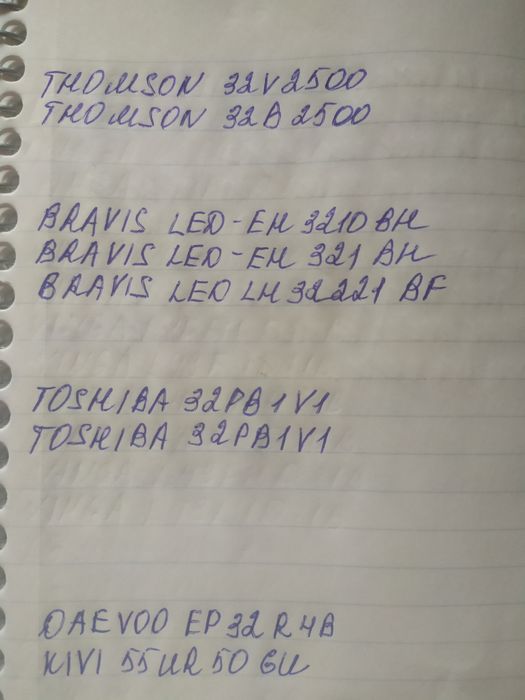 THOMSON 32V2500
THOMSON 32B2500
BRAVIS LED-EH3210BH
BRAVIS LED-EH 321 BH
BRAVIS LED LH32221 BF
TOSHIBA 32PB1V1
TOSHIBA 32PB1V1
DAEVOO EP32R4B
KIVI 55UR50GU